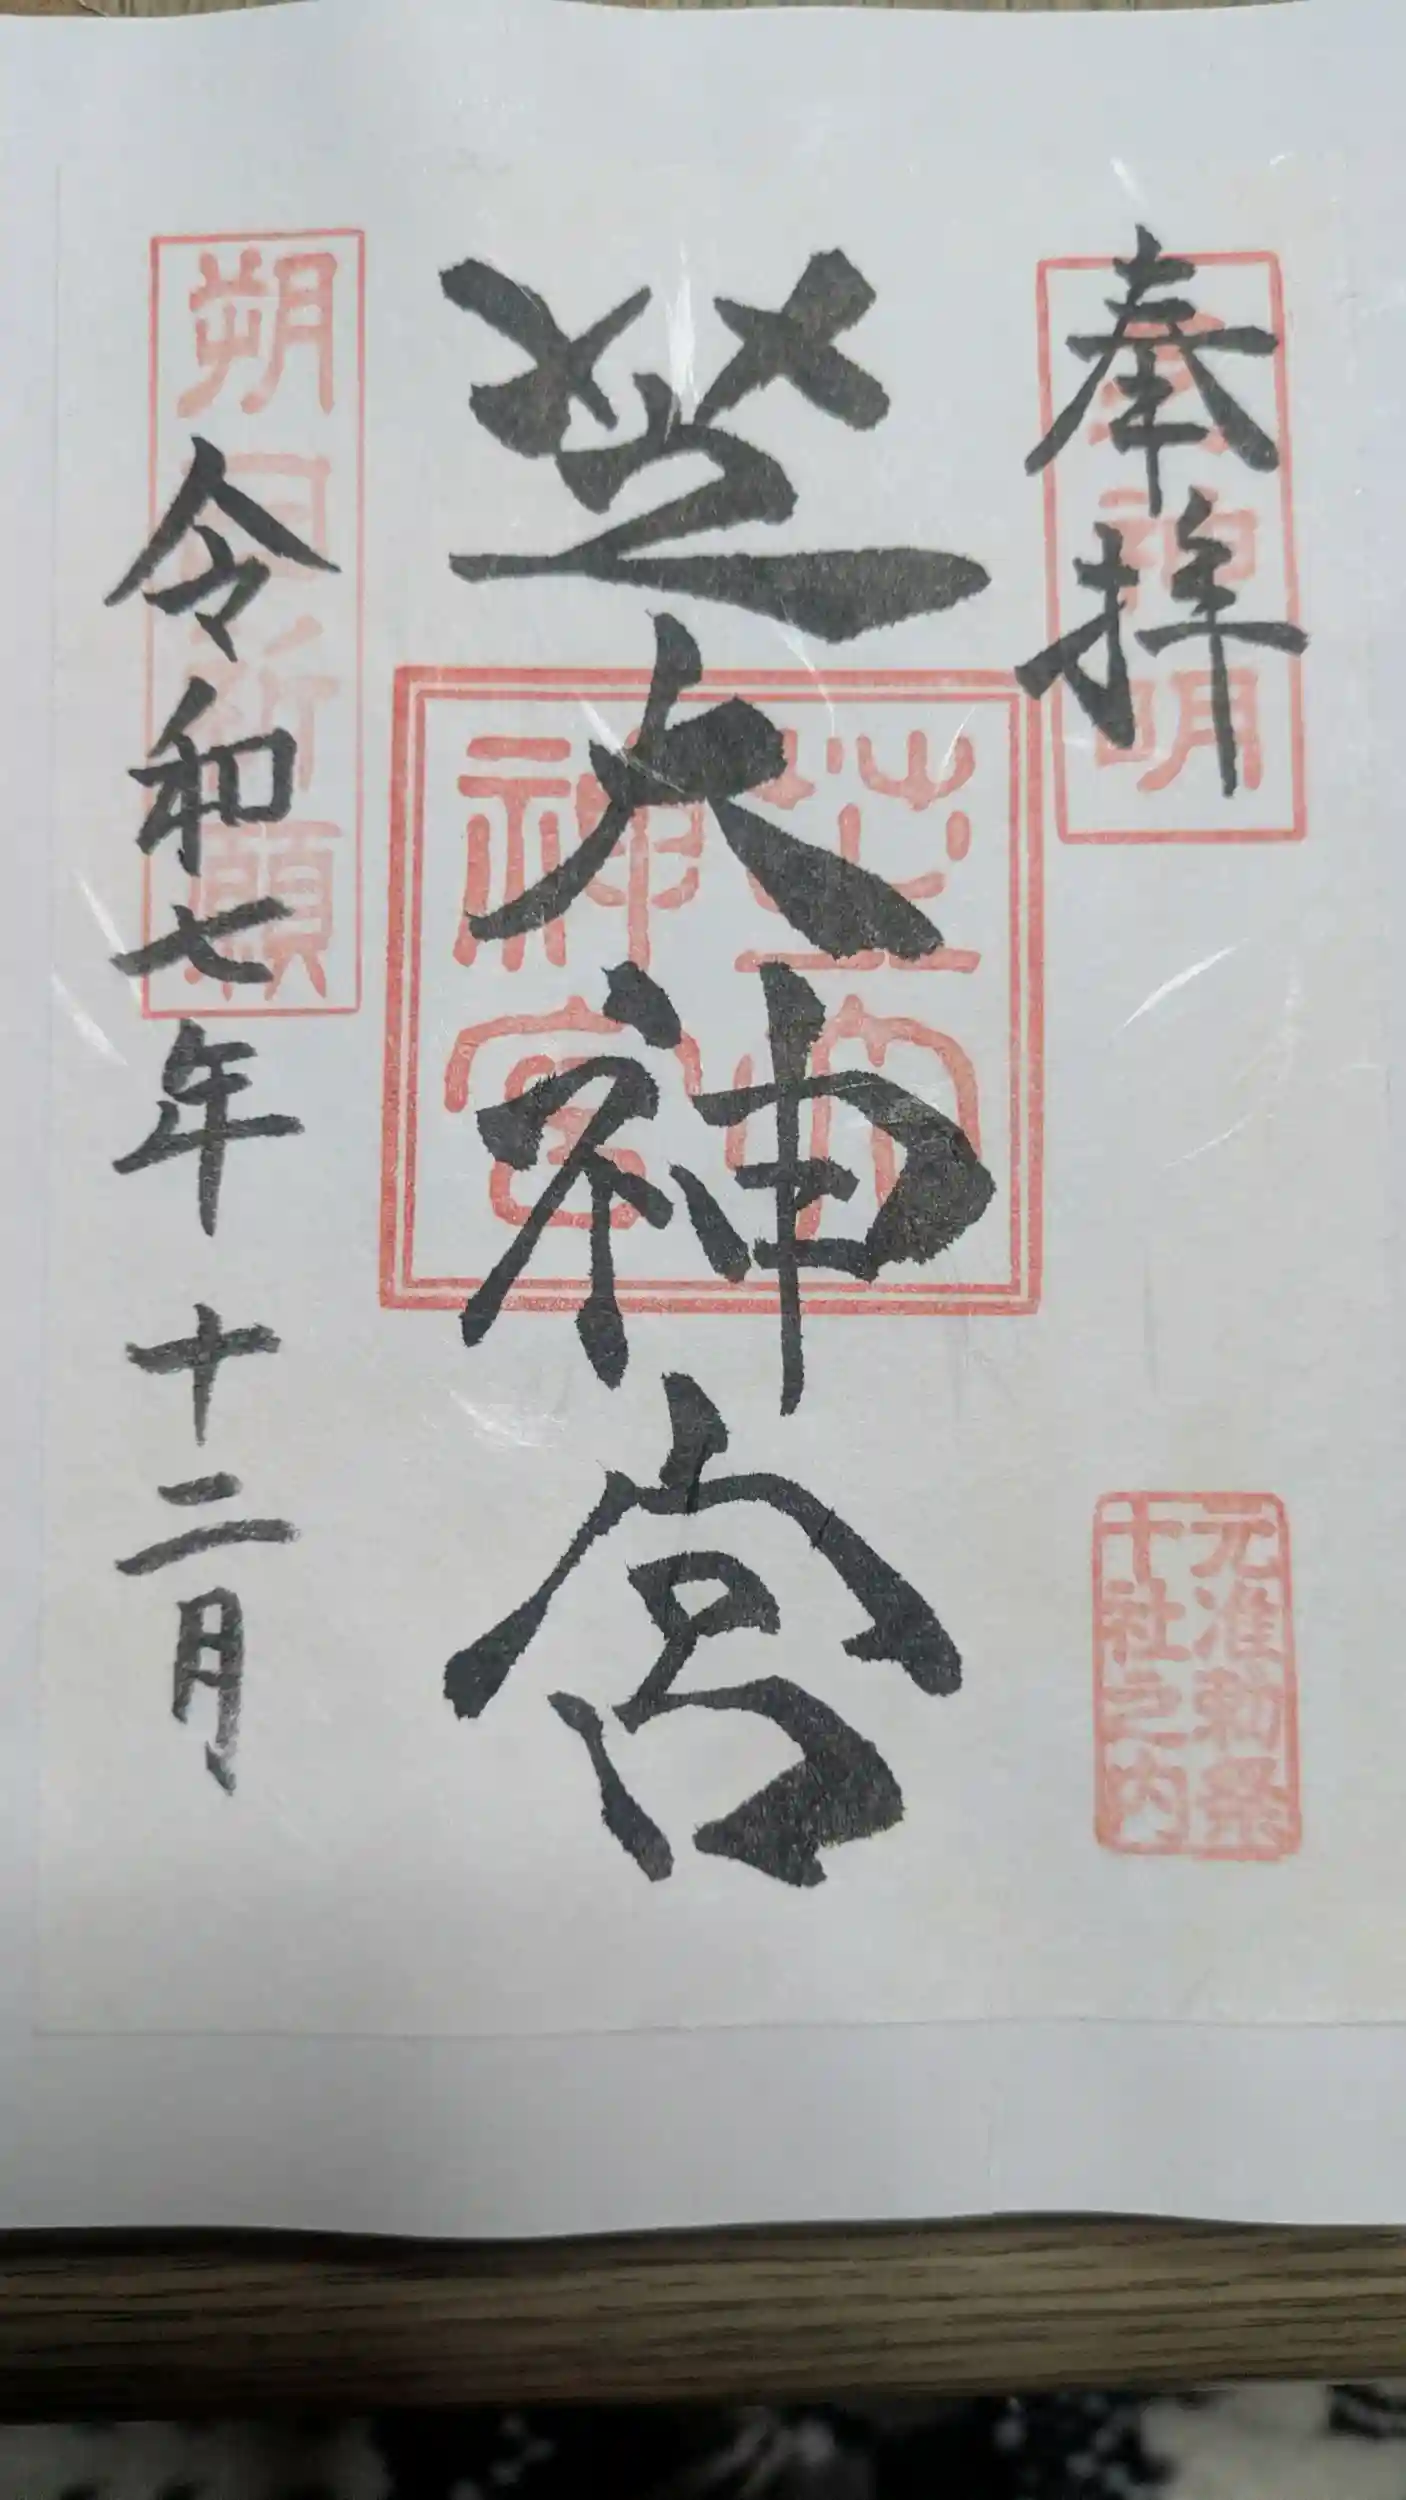 奉拝
元准勅祭
十社之内
芝大神宮
芝大
神宮
朔日祈願
令和七年十二月